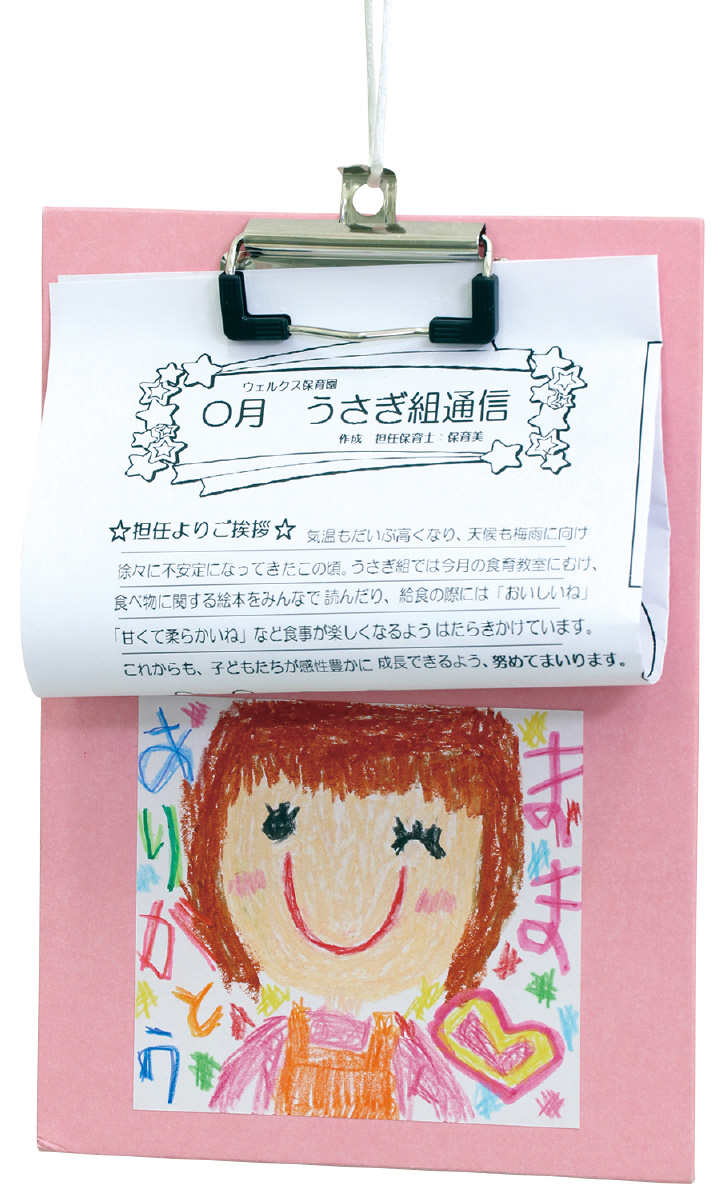 ウェルクス保育園
〇月　うさぎ組通信
作成　担任保育士：保育美
☆担任よりご挨拶☆ 気温もだいぶ高くなり、天候も梅雨に向け
徐々に不安定になってきたこの頃。うさぎ組では今月の食育教室にむけ、
食べ物に関する絵本をみんなで 読んだり、給食の際には「おいしいね」
「甘くて柔らかいね」など食事が楽しくなるよう はたらきかけています。
これからも、子どもたちが感性豊かに 成長できるよう、努めてまいります。
まま
ありがとう